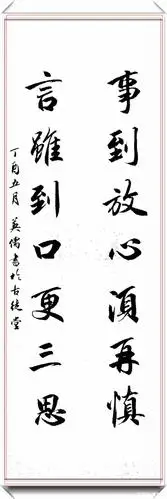 事到放心須再慎
言雖到口更三思
丁酉五月英儒書於古徒堂